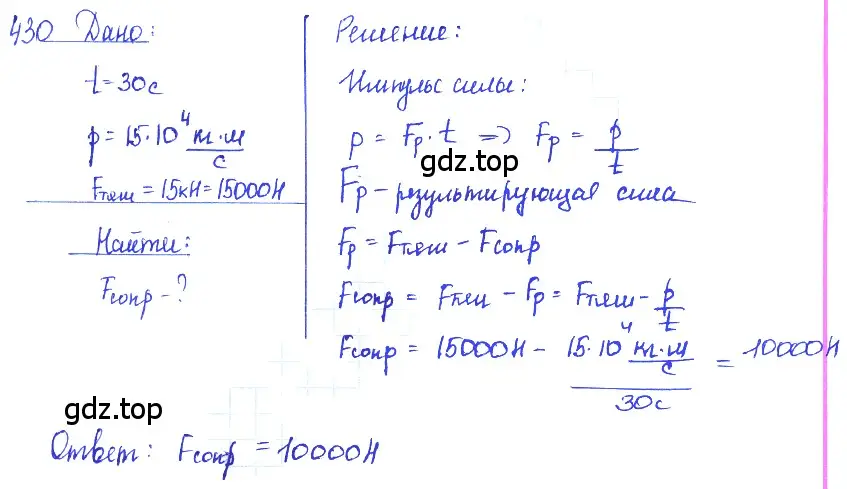 430 Дано:
t = 30с
p = 15·10⁴ кг·м/с
Fтяги = 15кН = 15000Н
Найти:
Fсопр - ?
Решение:
Импульс силы:
p = Fр · t => Fр = p/t
gdz.top
Fр - результирующая сила
Fр = Fтяги - Fсопр
Fсопр = Fтяги - Fр = Fтяги - p/t
Fсопр = 15000Н - 15·10⁴ кг·м/с / 30с = 10000Н
gdz.top
Ответ: Fсопр = 10000Н